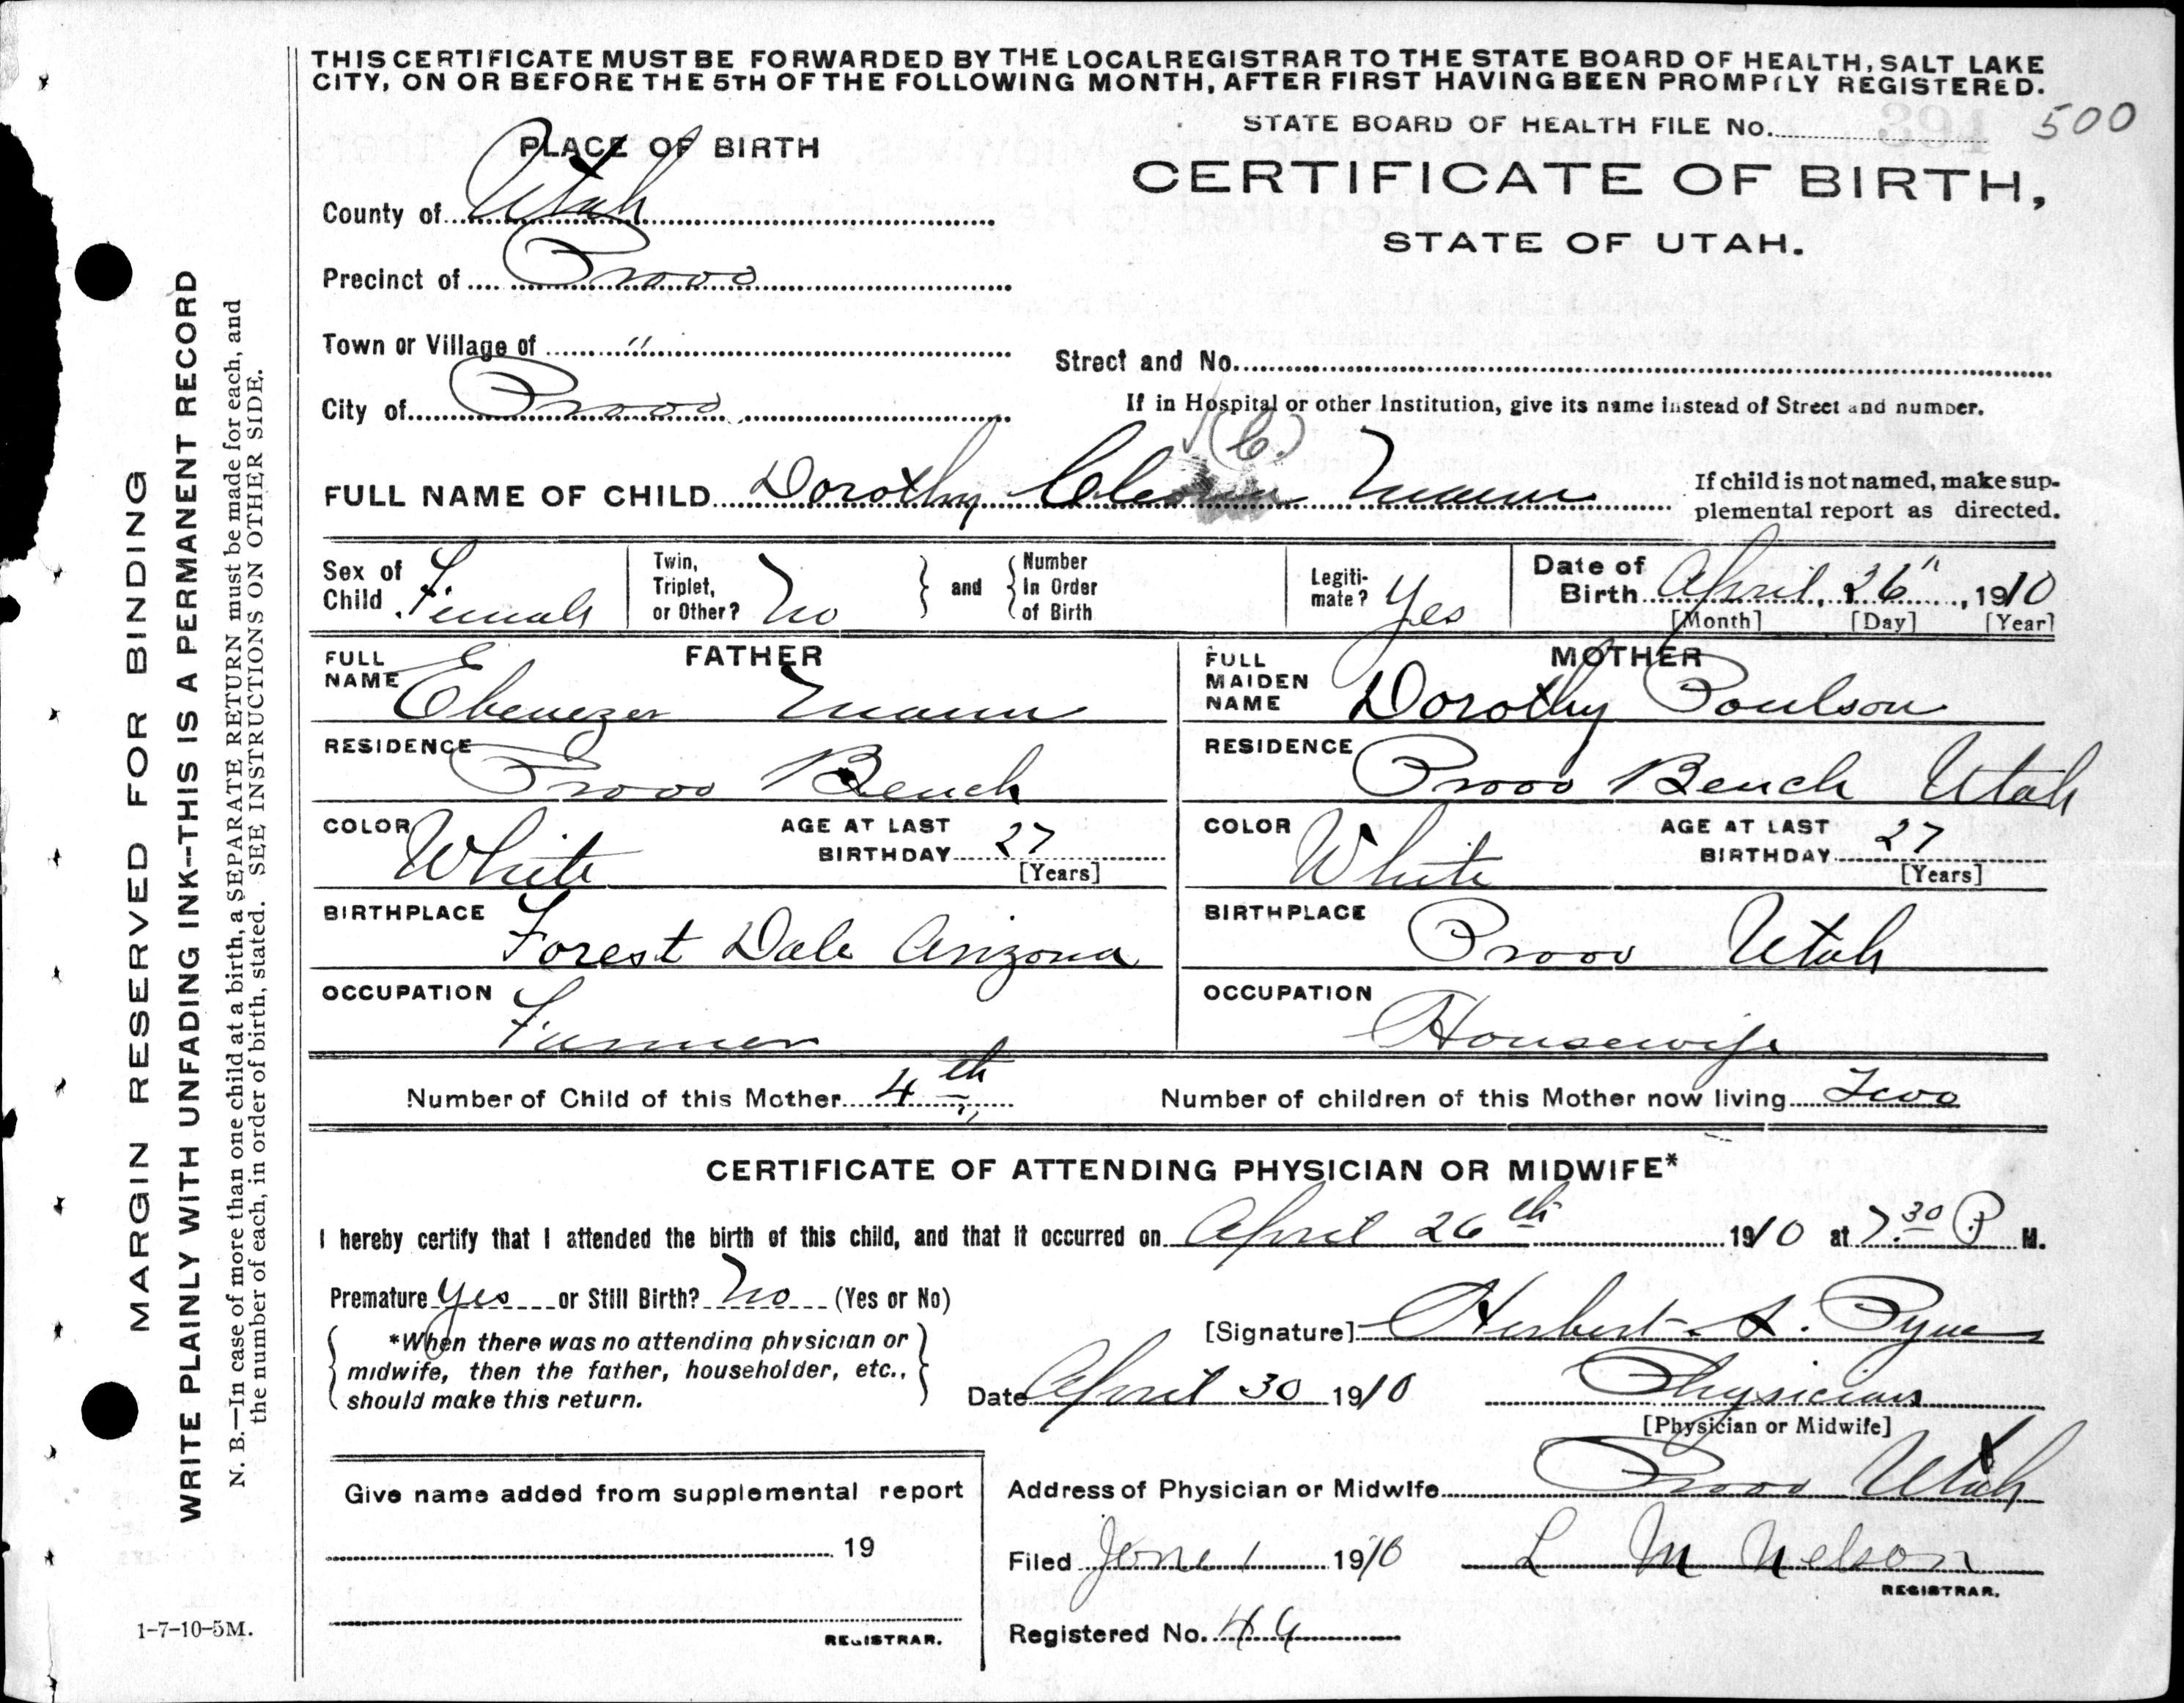 THIS CERTIFICATE MUST BE FORWARDED BY THE LOCAL REGISTRAR TO THE STATE BOARD OF HEALTH, SALT LAKE
CITY, ON OR BEFORE THE 5TH OF THE FOLLOWING MONTH, AFTER FIRST HAVING BEEN PROMPTLY REGISTERED.
STATE BOARD OF HEALTH FILE No. 500
PLACE OF BIRTH
CERTIFICATE OF BIRTH,
STATE OF UTAH.
County of Utah
Precinct of Provo
Town or Village of "
Street and No.
City of Provo
If in Hospital or other Institution, give its name instead of Street and number.
(C.)
FULL NAME OF CHILD Dorothy Mann
If child is not named, make sup-
plemental report as directed.
Sex of Child Female
Twin, Triplet, or Other? No
and
Number In Order of Birth
Legiti-mate? Yes
Date of Birth April, 26", 1910
[Month] [Day] [Year]
FATHER
FULL NAME Ebenezer Mann
MOTHER
FULL MAIDEN NAME Dorothy Poulson
RESIDENCE Provo Bench
RESIDENCE Provo Bench Utah
COLOR White
AGE AT LAST BIRTHDAY 27
[Years]
COLOR White
AGE AT LAST BIRTHDAY 27
[Years]
BIRTHPLACE Forest Dale Arizona
BIRTHPLACE Provo Utah
OCCUPATION Farmer
OCCUPATION Housewife
Number of Child of this Mother 4th
Number of children of this Mother now living Two
CERTIFICATE OF ATTENDING PHYSICIAN OR MIDWIFE*
I hereby certify that I attended the birth of this child, and that it occurred on April 26th 1910 at 7.30 P M.
Premature Yes or Still Birth? No (Yes or No)
*When there was no attending physician or
midwife, then the father, householder, etc.,
should make this return.
[Signature] Herbert S. Pyne
Date April 30 1910
Physician
[Physician or Midwife]
Give name added from supplemental report
19
REGISTRAR.
Address of Physician or Midwife Provo Utah
Filed June 1 1910
L M Nelson
REGISTRAR.
Registered No. 44
1-7-10-5M.
MARGIN RESERVED FOR BINDING
WRITE PLAINLY WITH UNFADING INK--THIS IS A PERMANENT RECORD
N. B.—In case of more than one child at a birth, a SEPARATE RETURN must be made for each, and
the number of each, in order of birth, stated. SEE INSTRUCTIONS ON OTHER SIDE.